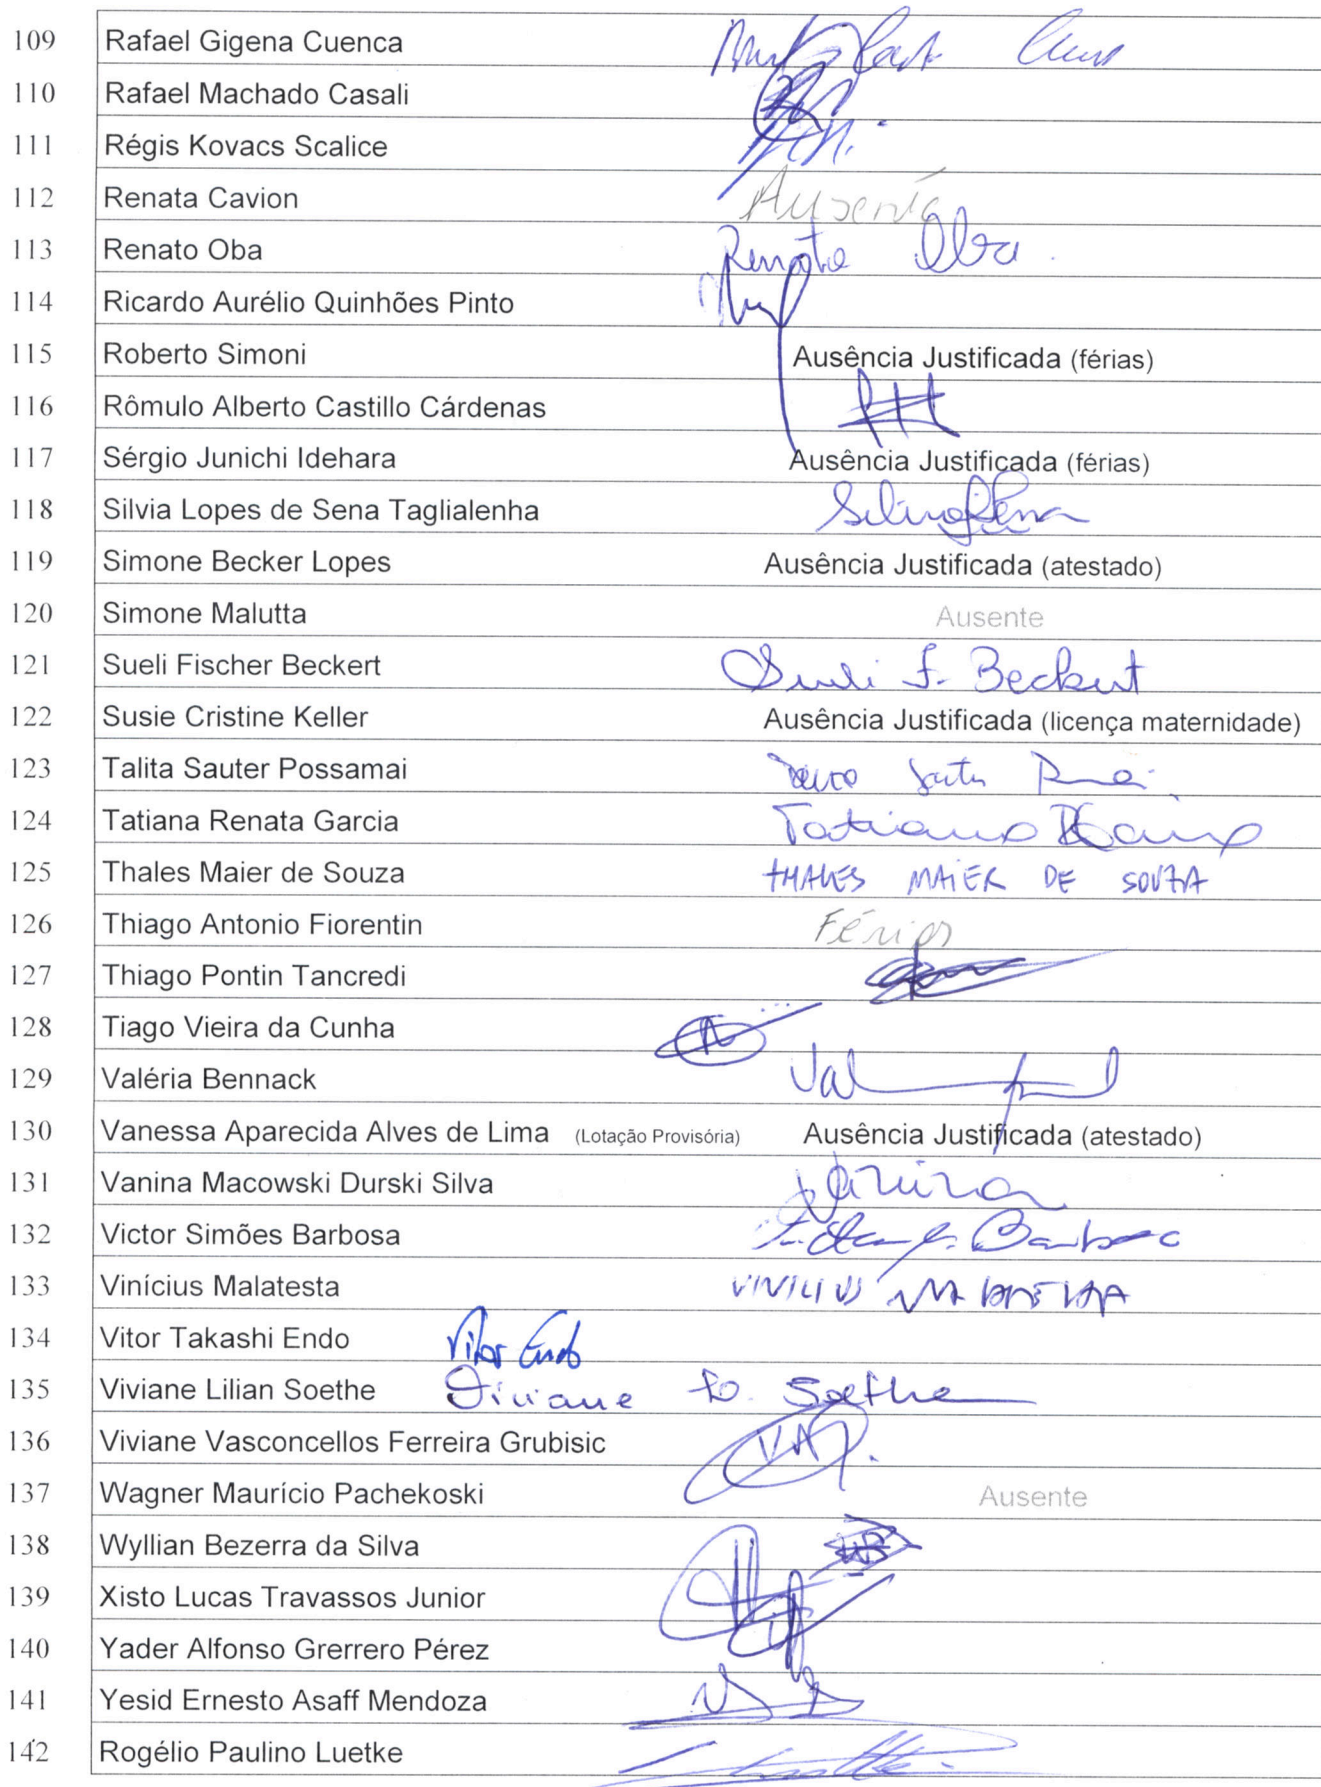 109 Rafael Gigena Cuenca
110 Rafael Machado Casali
111 Régis Kovacs Scalice
112 Renata Cavion Ausente
113 Renato Oba Renato Oba
114 Ricardo Aurélio Quinhões Pinto
115 Roberto Simoni Ausência Justificada (férias)
116 Rômulo Alberto Castillo Cárdenas
117 Sérgio Junichi Idehara Ausência Justificada (férias)
118 Silvia Lopes de Sena Taglialenha
119 Simone Becker Lopes Ausência Justificada (atestado)
120 Simone Malutta Ausente
121 Sueli Fischer Beckert Sueli F. Beckert
122 Susie Cristine Keller Ausência Justificada (licença maternidade)
123 Talita Sauter Possamai
124 Tatiana Renata Garcia Tatiana R Garcia
125 Thales Maier de Souza THALES MAIER DE SOUZA
126 Thiago Antonio Fiorentin Férias
127 Thiago Pontin Tancredi
128 Tiago Vieira da Cunha
129 Valéria Bennack
130 Vanessa Aparecida Alves de Lima (Lotação Provisória) Ausência Justificada (atestado)
131 Vanina Macowski Durski Silva Vanina
132 Victor Simões Barbosa Barbosa
133 Vinícius Malatesta VINICIUS MALATESTA
134 Vitor Takashi Endo Vitor Endo
135 Viviane Lilian Soethe Viviane L. Soethe
136 Viviane Vasconcellos Ferreira Grubisic
137 Wagner Maurício Pachekoski Ausente
138 Wyllian Bezerra da Silva
139 Xisto Lucas Travassos Junior
140 Yader Alfonso Grerrero Pérez
141 Yesid Ernesto Asaff Mendoza
142 Rogélio Paulino Luetke